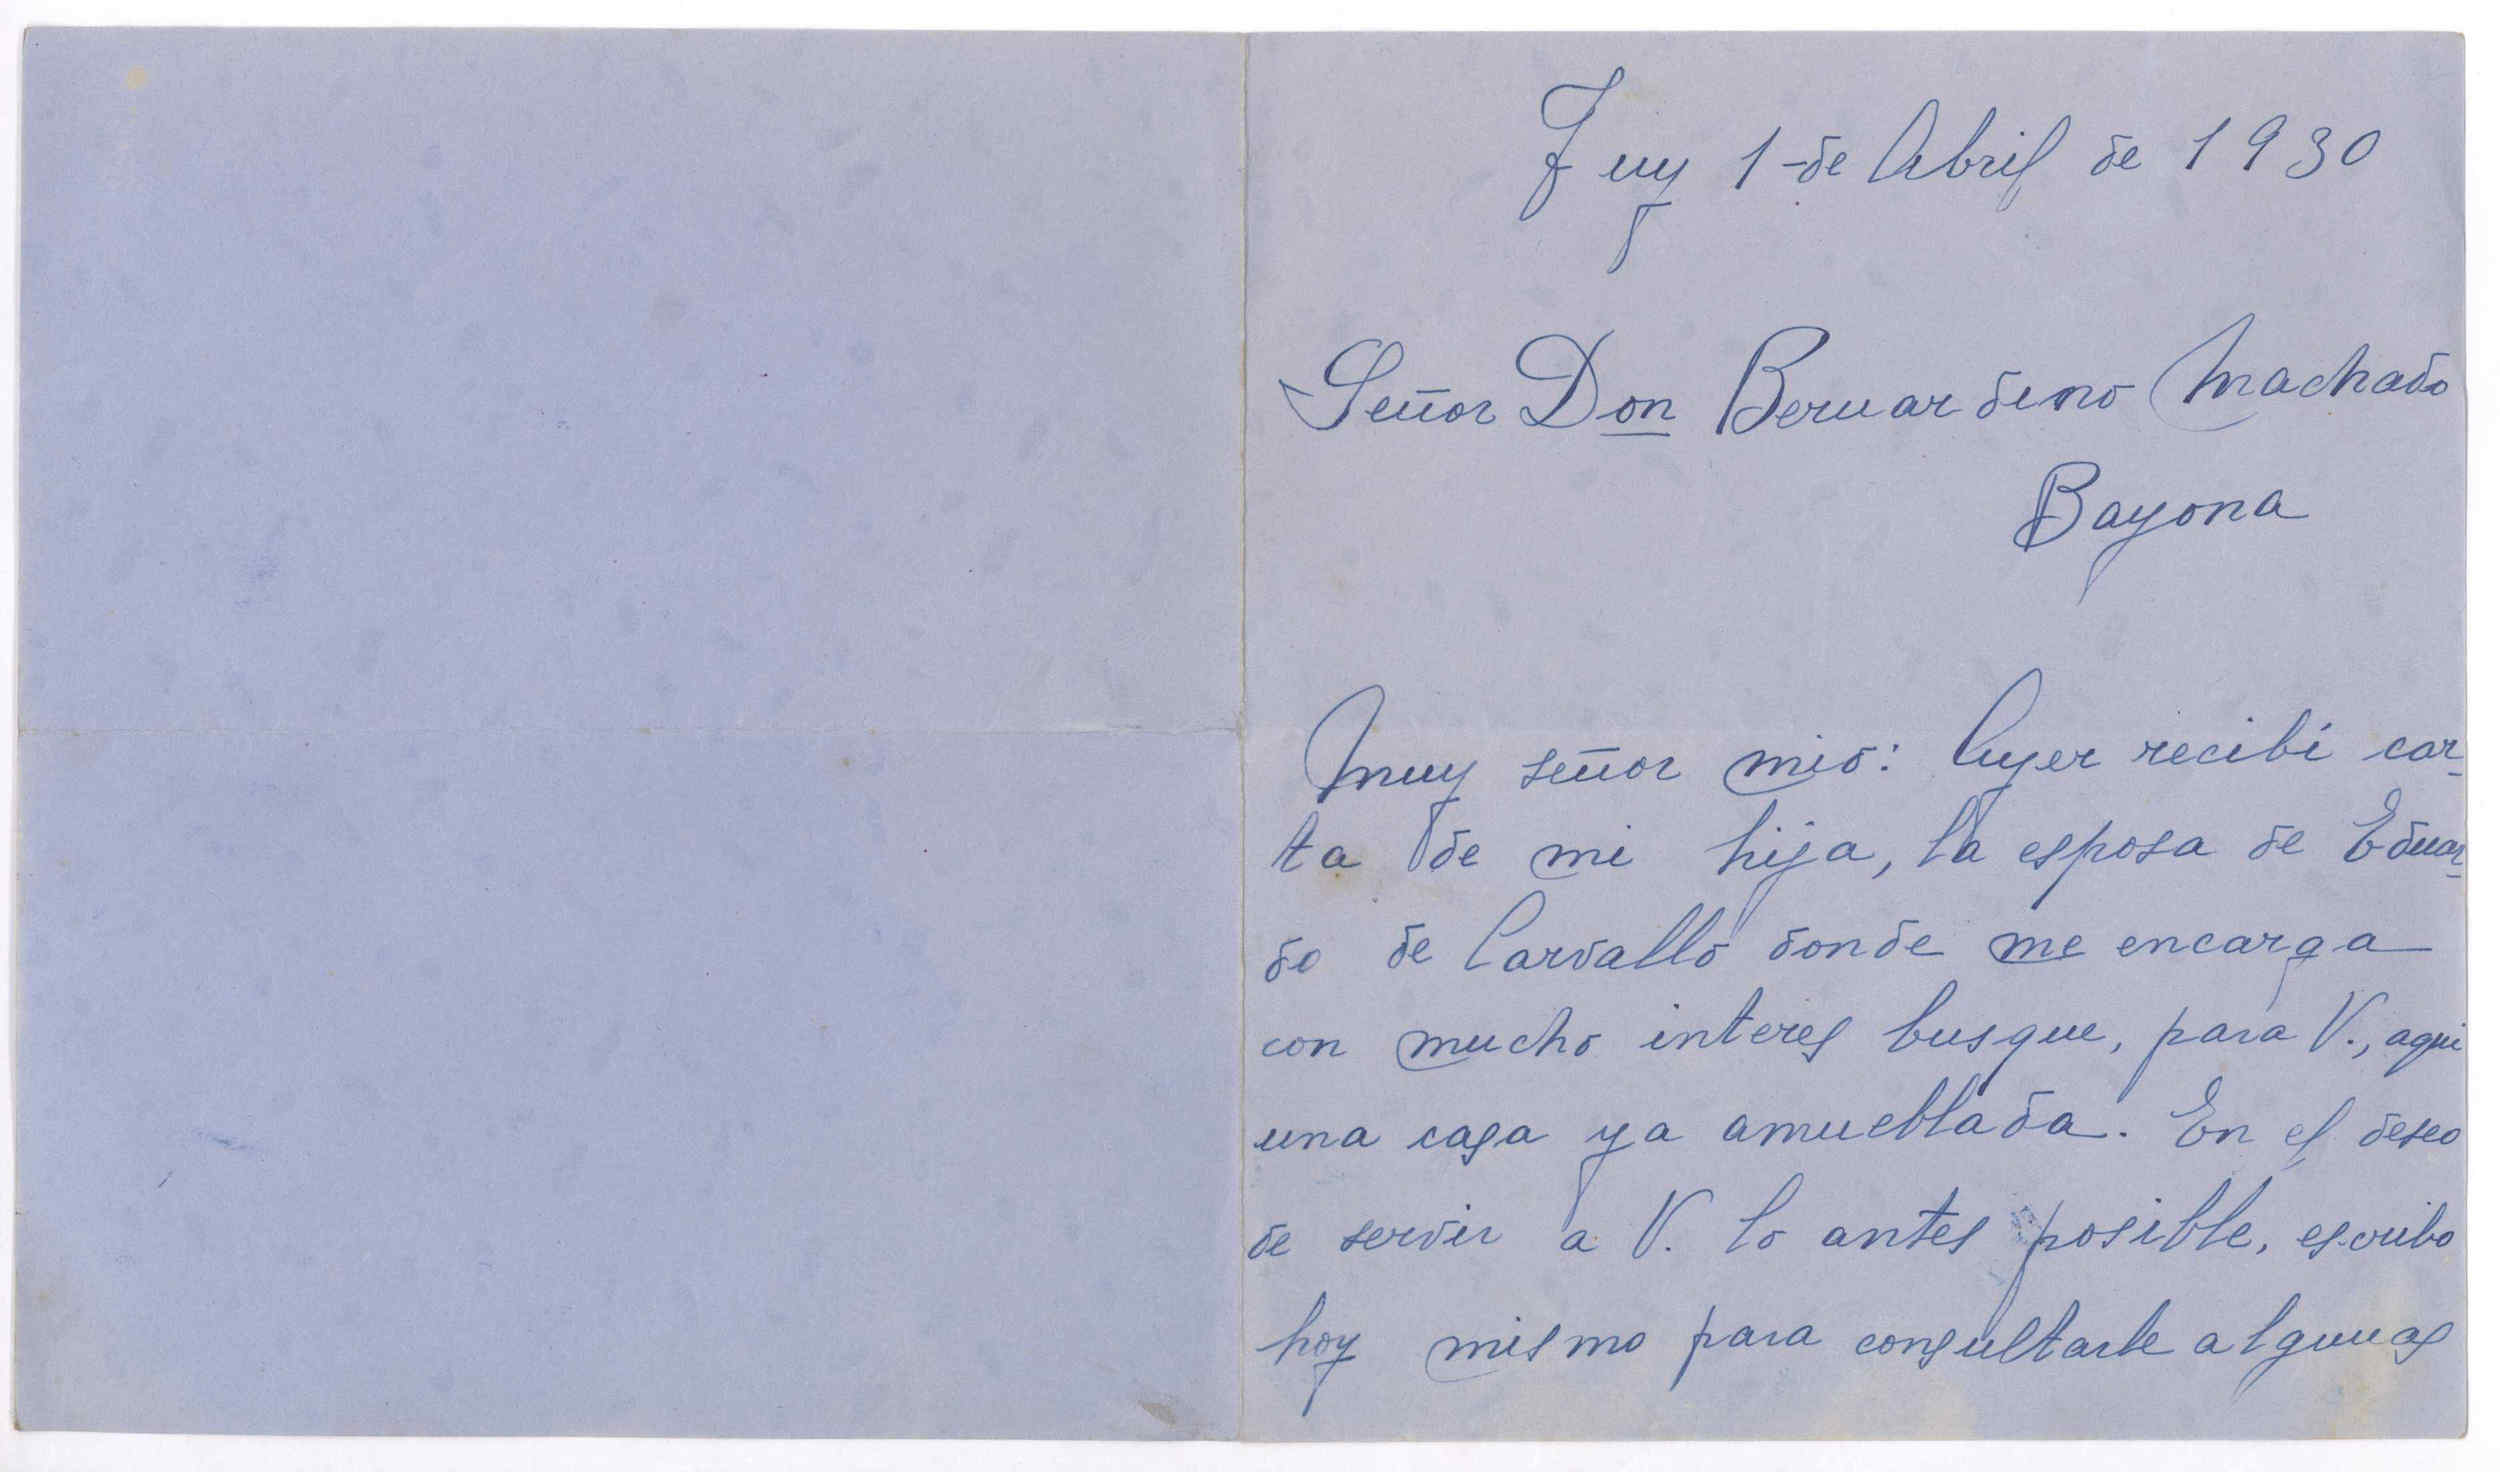 Tuy 1-de Abril de 1930
Señor Don Bernardino Machado
Bayona
Muy señor mio: Ayer recibí car-
ta de mi hija, la esposa de Eduar-
do de Carvallo donde me encarga
con mucho interes busque, para V., aqui
una casa ya amueblada. En el deseo
de servir a V. lo antes posible, escribo
hoy mismo para consultarle algunas